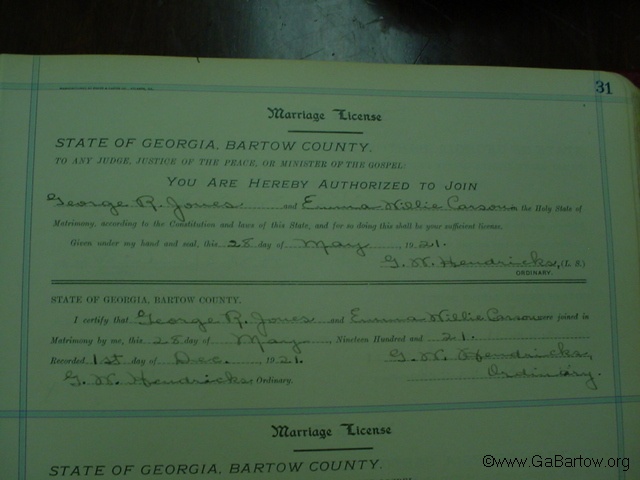 31
Marriage License
STATE OF GEORGIA, BARTOW COUNTY.
TO ANY JUDGE, JUSTICE OF THE PEACE, OR MINISTER OF THE GOSPEL:
YOU ARE HEREBY AUTHORIZED TO JOIN
George R. Jones and Emma Willie Carson in the Holy State of
Matrimony, according to the Constitution and laws of this State, and for so doing this shall be your sufficient license.
Given under my hand and seal, this 28 day of May 1921.
G. W. Hendricks, (L. S.)
ORDINARY.
STATE OF GEORGIA, BARTOW COUNTY.
I certify that George R. Jones and Emma Willie Carson were joined in
Matrimony by me, this 28 day of May Nineteen Hundred and 21.
Recorded, 1st day of Dec. 1921. G. W. Hendricks,
G. W. Hendricks Ordinary. Ordinary.
Marriage License
STATE OF GEORGIA, BARTOW COUNTY.
©www.GaBartow.org